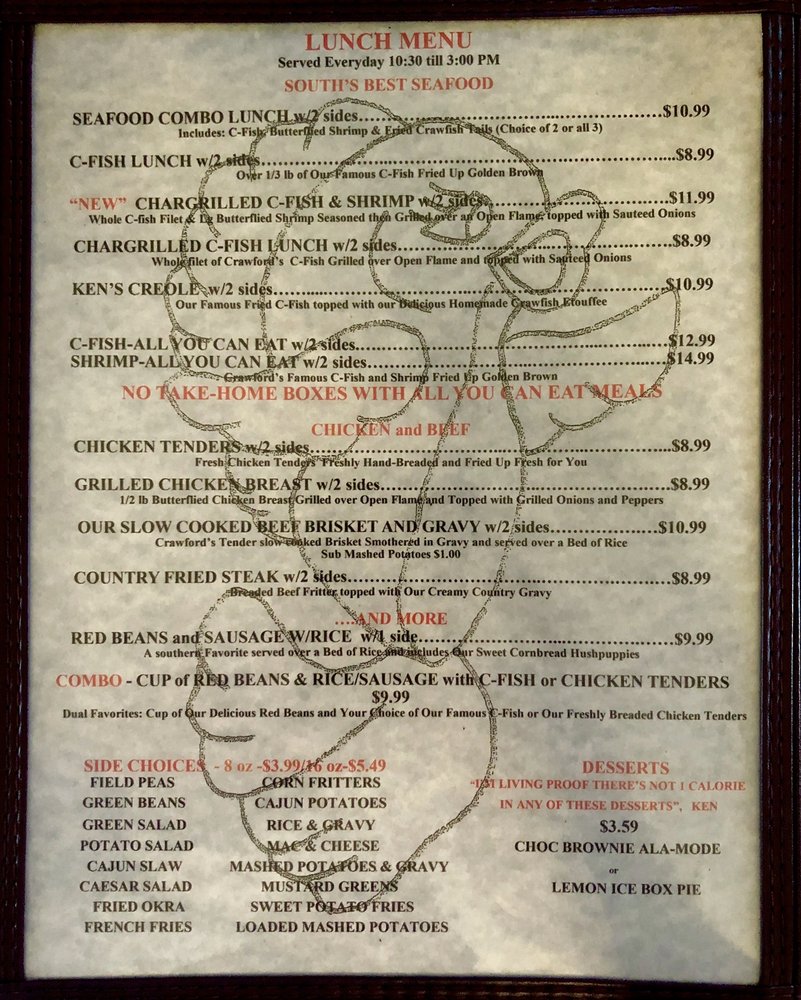 LUNCH MENU
Served Everyday 10:30 till 3:00 PM
SOUTH'S BEST SEAFOOD
SEAFOOD COMBO LUNCH w/2 sides.....$10.99
Includes: C-Fish, Butterflied Shrimp & Fried Crawfish Tails (Choice of 2 or all 3)
C-FISH LUNCH w/2 sides.....$8.99
Over 1/3 lb of Our Famous C-Fish Fried Up Golden Brown
"NEW" CHARGRILLED C-FISH & SHRIMP w/2 sides.....$11.99
Whole C-fish Filet & Butterflied Shrimp Seasoned then Grilled over an Open Flame, topped with Sauteed Onions
CHARGRILLED C-FISH LUNCH w/2 sides.....$8.99
Whole filet of Crawford's C-Fish Grilled over Open Flame and topped with Sauteed Onions
KEN'S CREOLE w/2 sides.....$10.99
Our Famous Fried C-Fish topped with our Delicious Homemade Crawfish Etouffee
C-FISH-ALL YOU CAN EAT w/2 sides.....$12.99
SHRIMP-ALL YOU CAN EAT w/2 sides.....$14.99
Crawford's Famous C-Fish and Shrimp Fried Up Golden Brown
NO TAKE-HOME BOXES WITH ALL YOU CAN EAT MEALS
CHICKEN and BEEF
CHICKEN TENDERS w/2 sides.....$8.99
Fresh Chicken Tenders Freshly Hand-Breaded and Fried Up Fresh for You
GRILLED CHICKEN BREAST w/2 sides.....$8.99
1/2 lb Butterflied Chicken Breast Grilled over Open Flame and Topped with Grilled Onions and Peppers
OUR SLOW COOKED BEEF BRISKET AND GRAVY w/2 sides.....$10.99
Crawford's Tender slow cooked Brisket Smothered in Gravy and served over a Bed of Rice
Sub Mashed Potatoes $1.00
COUNTRY FRIED STEAK w/2 sides.....$8.99
Breaded Beef Fritter topped with Our Creamy Country Gravy
....AND MORE
RED BEANS and SAUSAGE W/RICE w/1 side.....$9.99
A southern Favorite served over a Bed of Rice and includes Our Sweet Cornbread Hushpuppies
COMBO - CUP of RED BEANS & RICE/SAUSAGE with C-FISH or CHICKEN TENDERS
$9.99
Dual Favorites: Cup of Our Delicious Red Beans and Your Choice of Our Famous C-Fish or Our Freshly Breaded Chicken Tenders
SIDE CHOICES - 8 oz -$3.99/16 oz-$5.49
FIELD PEAS
GREEN BEANS
GREEN SALAD
POTATO SALAD
CAJUN SLAW
CAESAR SALAD
FRIED OKRA
FRENCH FRIES
CORN FRITTERS
CAJUN POTATOES
RICE & GRAVY
MAC & CHEESE
MASHED POTATOES & GRAVY
MUSTARD GREENS
SWEET POTATO FRIES
LOADED MASHED POTATOES
DESSERTS
"I'M LIVING PROOF THERE'S NOT 1 CALORIE
IN ANY OF THESE DESSERTS", KEN
$3.59
CHOC BROWNIE ALA-MODE
or
LEMON ICE BOX PIE